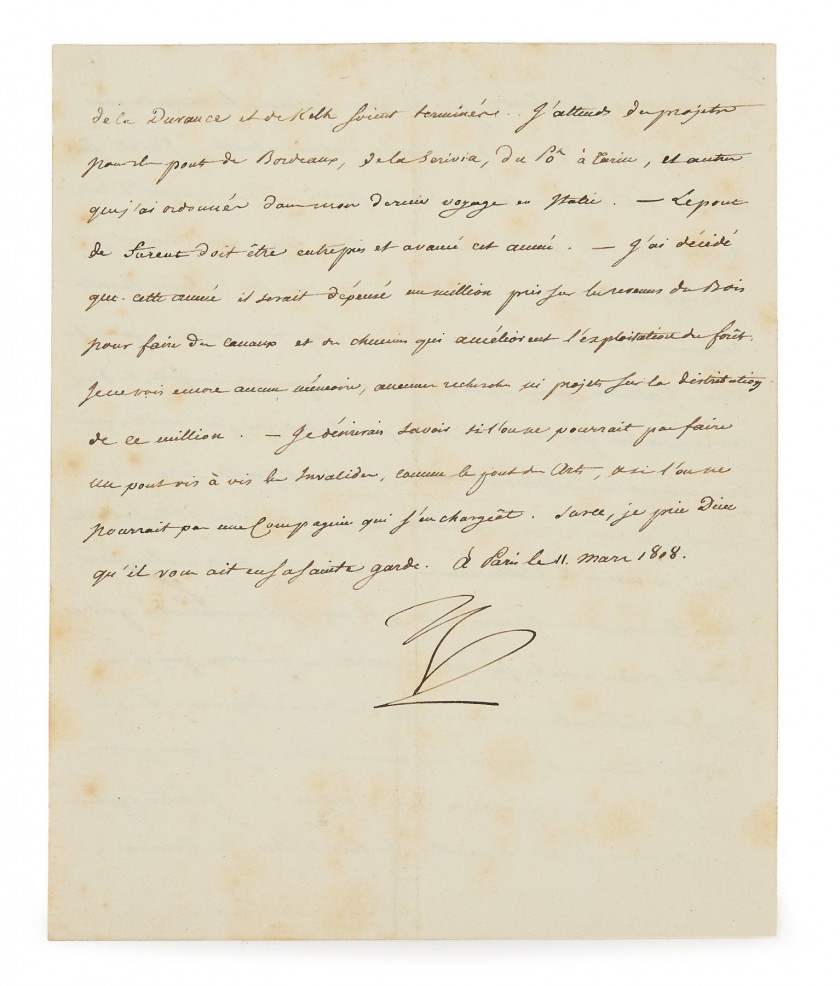 de la Durance et de Kelh soient terminés. J'attends des projets
pour les ponts de Bordeaux, de la Scrivia, du Pô à Turin, et autres
que j'ai ordonnés dans mon dernier voyage en Italie. — Le pont
de doit être entrepris et avancé cet année. — J'ai décidé
que cette année il serait dépensé un million pris sur les revenus des Bois
pour faire des canaux et des chemins qui améliorent l'exploitation des forêts.
Je ne vois encore aucun mémoire, aucunes recherches ni projets sur la distribution
de ce million. — Je désirerais savoir si l'on ne pourrait pas faire
un pont vis à vis les Invalides, comme le pont des Arts, et si l'on ne
pourrait pas une Compagnie qui s'en chargeât. Sur ce, je prie Dieu
qu'il vous ait en sa sainte garde. À Paris le 11. mars 1808.